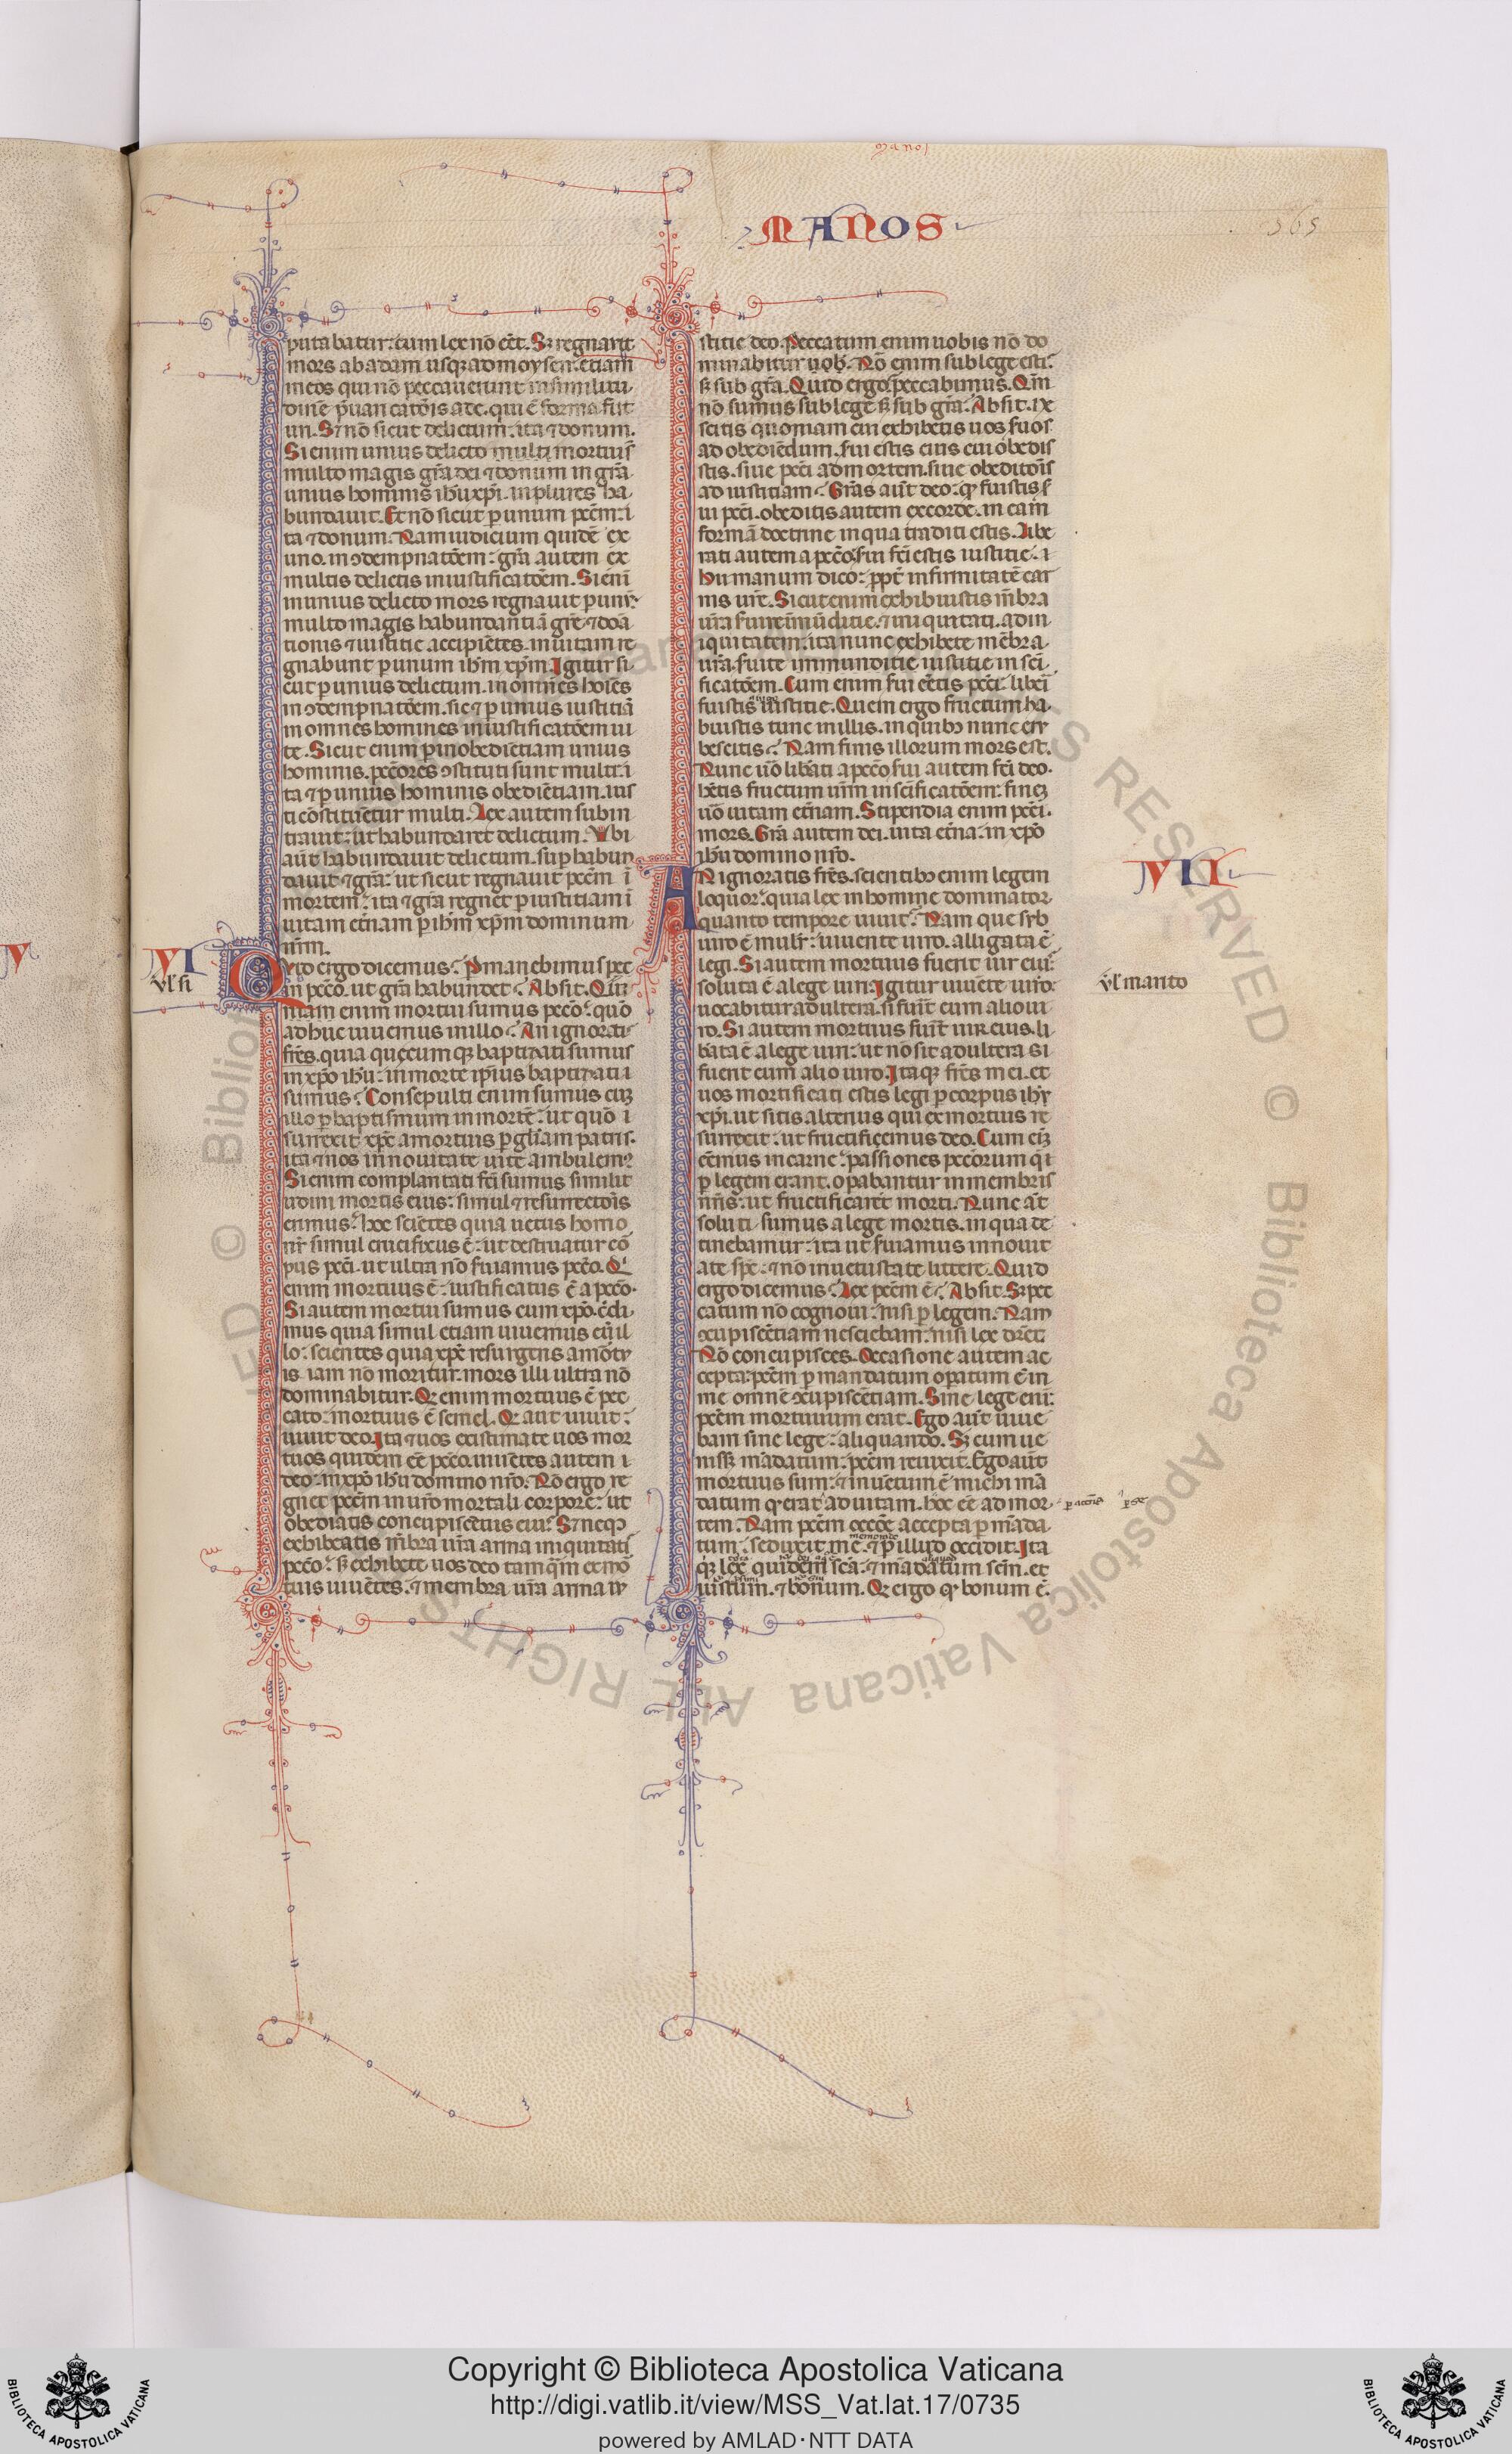 manos
MANOS
365
putabatur: cum lex nõ eẽt. Sꝫ regnauit
mors ab adam usqꝫ ad moysen: etiam
in eos qui nõ peccauerunt in similitu
dinẽ p̃uaricatõis ade. qui ẽ forma futu
ri. Sꝫ nõ sicut delictum: ita ⁊ donum.
Si enim unius delicto multi mortui sũt
multo magis gr̃a dei ⁊ donum in gr̃a
unius hominis ihũ xp̃i. in plures ha
bundauit. Et nõ sicut ꝑ unum pcc̃m: i
ta ⁊ donum. Nam iudicium quidẽ ex
uno. in ꝯdempnatõem: gr̃a autem ex
multis delictis in iustificatõem. Si eni
m unius delicto mors regnauit ꝑ unũ:
multo magis habundantiã gr̃e ⁊ doã
tionis ⁊ iustitie accipiẽtes. in uitam re
gnabunt ꝑ unum ihm̃ xp̃m. Igitur si
cut ꝑ unius delictum. in omnes hoĩes
in ꝯdempnatõem. sic ⁊ ꝑ unius iustitiã
in omnes homines in iustificatõem ui
te. Sicut enim ꝑ inobediẽtiam unius
hominis. pcc̃ores ꝯstituti sunt multi: i
ta ⁊ ꝑ unius hominis obediẽtiam. ius
ti cõstituẽtur multi. Lex autem subin
trauit: ut habundaret delictum. Vbi
aũt habundauit delictum. suꝑhabun
dauit ⁊ gr̃a: ut sicut regnauit pcc̃m ĩ
mortem: ita ⁊ gr̃a regnet ꝑ iustitiam ĩ
uitam et̃nam ꝑ ihm̃ xp̃m dominum
nr̃m.
VI
Quid ergo dicemus: Pmanebimus pec
in pcc̃o. ut gr̃a habundet: Absit. Qm̃
niam enim mortui sumus pcc̃o: quõ
adhuc uiuemus in illo: An ignorati
fr̃es. quia quicumqꝫ baptizati sumus
in xp̃o ihũ: in morte ip̃ius baptizati
sumus: Consepulti enim sumus cũ
illo ꝑ baptismum in mortẽ: ut quõ
surrexit xp̃c a mortuis ꝑ gl̃iam patris.
ita ⁊ nos in nouitate uite ambulem⁹
Si enim complantati fc̃i sumus similit
udini mortis eius: simul ⁊ resurrectõis
erimus: hoc sciẽtes quia uetus homo
nr̃ simul crucifixus ẽ: ut destruatur cõ
pus pcc̃i. ut ultra nõ ſuiamus pcc̃o. Qͥ
enim mortuus ẽ: iustificatus ẽ a pcc̃o.
Si autem mortui sumus cum xp̃o. c̃di
mus quia simul etiam uiuemus cũ il
lo: scientes quia xp̃c resurgens a mõtu
is iam nõ moritur. mors illi ultra nõ
dominabitur. Qꝫ enim mortuus ẽ pec
cato: mortuus ẽ semel. Qꝫ aũt uiuit:
uiuit deo. Ita ⁊ uos existimate uos mor
tuos quidem eẽ pcc̃o. uiuẽtes autem i
deo: in xp̃o ihũ domino nr̃o. Nõ ergo re
gnet pcc̃m in ur̃o mortali corpore: ut
obediatis concupiscẽtiis eius. Sꝫ neqꝫ
exhibeatis m̃bra ur̃a arma iniquitatis
pcc̃o: sꝫ exhibete uos deo tamq̃m ex mõ
tuis uiuẽtes. ⁊ membra ur̃a arma iu
stitie deo. Peccatum enim uobis nõ do
minabitur uob̃. Nõ enim sub lege estis
sꝫ sub gr̃a. Quid ergo: peccabimus. Qm̃
nõ sumus sub lege sꝫ sub gr̃a: Absit. Ne
scitis quoniam cui exhibetis uos ſuos
ad obediẽdum. ſui estis eius cui obedis
stis. siue pcc̃i ad mortem. siue obeditõis
ad iustitiam: Gr̃as aũt deo: qꝫ fuistis ſ
ui pcc̃i. obeditis autem ex corde. in eam
formã doctrine in qua traditi estis. Libe
rati autem a pcc̃o ſui fc̃i estis iustitie.
Humanum dico: ꝓpt̃ infirmitatẽ car
nis ur̃e. Sicut enim exhibuistis m̃bra
ur̃a ſuire inmũditie. ⁊ iniquitati. ad in
iquitatem: ita nunc exhibete mẽbra
ur̃a. ſuite inmunditie iustitie in sc̃i
ficatõem. Cum enim ſui eẽtis pcc̃i: liberi
fuistis iustitie. Quem ergo fructum ha
buistis tunc in illis. in quibꝫ nunc eru
bescitis: Nam finis illorum mors est.
Nunc ũo libẽati a pcc̃o ſui autem fc̃i deo.
hẽtis fructum ur̃m in sc̃ificatõem: finẽ
ũo uitam et̃nam. Stipendia enim pcc̃i.
mors. Gr̃a autem dei. uita et̃na: in xp̃o
ihũ domino nr̃o.
VII
AN ignoratis fr̃es. scientibꝫ enim legem
loquor: quia lex in homine dominator
quanto tempore uiuit: Nam que sub
uiro ẽ mulr̃: uiuente uiro. alligata ẽ
legi. Si autem mortuus fuerit uir eius:
soluta ẽ a lege uiri. Igitur uiuẽte uiro:
ũl manto
uocabitur adultera. si fuit̃ cum alio ui
ro. Si autem mortuus fuit̃ uir eius. li
bata ẽ a lege uiri: ut nõ sit adultera si
fuerit cum alio uiro. Itaqꝫ fr̃es mei. et
uos mortificati estis legi ꝑ corpus ihũ
xp̃i. ut sitis alterius qui ex mortuis re
surrexit: ut fructificemus deo. Cum eĩ
eẽmus in carne: passiones pcc̃orum q̃ i
ꝑ legem erant. oꝑabantur in membris
nr̃is: ut fructificarẽt morti. Nunc aũt
soluti sumus a lege mortis. in qua de
tinebamur: ita ut ſuiamus in nouit
ate sp̃c: ⁊ nõ in uetustate littere. Quid
ergo dicemus: Lex pcc̃m ẽ: Absit. Sꝫ pec
catum nõ cognoui: nisi ꝑ legem. Nam
ꝯcupiscẽtiam nesciebam: nisi lex dic̃et
Nõ concupisces. Occasione autem ac
cepta: pcc̃m ꝑ mandatum oꝑatum ẽ in
me omnẽ ꝯcupiscẽtiam. Sine lege eni:
pcc̃m mortuum erat. Ego aũt uiue
bam sine lege: aliquando. Sꝫ cum ue
nissꝫ mãdatum: pcc̃m reuixit. Ego aũt
mortuus sum: ⁊ inuẽtum ẽ michi mã
datum qꝫ erat ad uitam. hoc eẽ ad mor
tem. Nam pcc̃m occõe accepta ꝑ mãda
tum: seduxit me. ⁊ ꝑ illud occidit. Ita
qꝫ lex quidem sc̃a: ⁊ mãdatum sc̃m. et
iustum. ⁊ bonum. Qꝫ ergo qꝫ bonum ẽ.
V
BIBLIOTECA APOSTOLICA VATICANA
Copyright © Biblioteca Apostolica Vaticana
http://digi.vatlib.it/view/MSS_Vat.lat.17/0735
powered by AMLAD·NTT DATA
BIBLIOTECA APOSTOLICA VATICANA
© Biblioteca Apostolica Vaticana ALL RIGHTS RESERVED